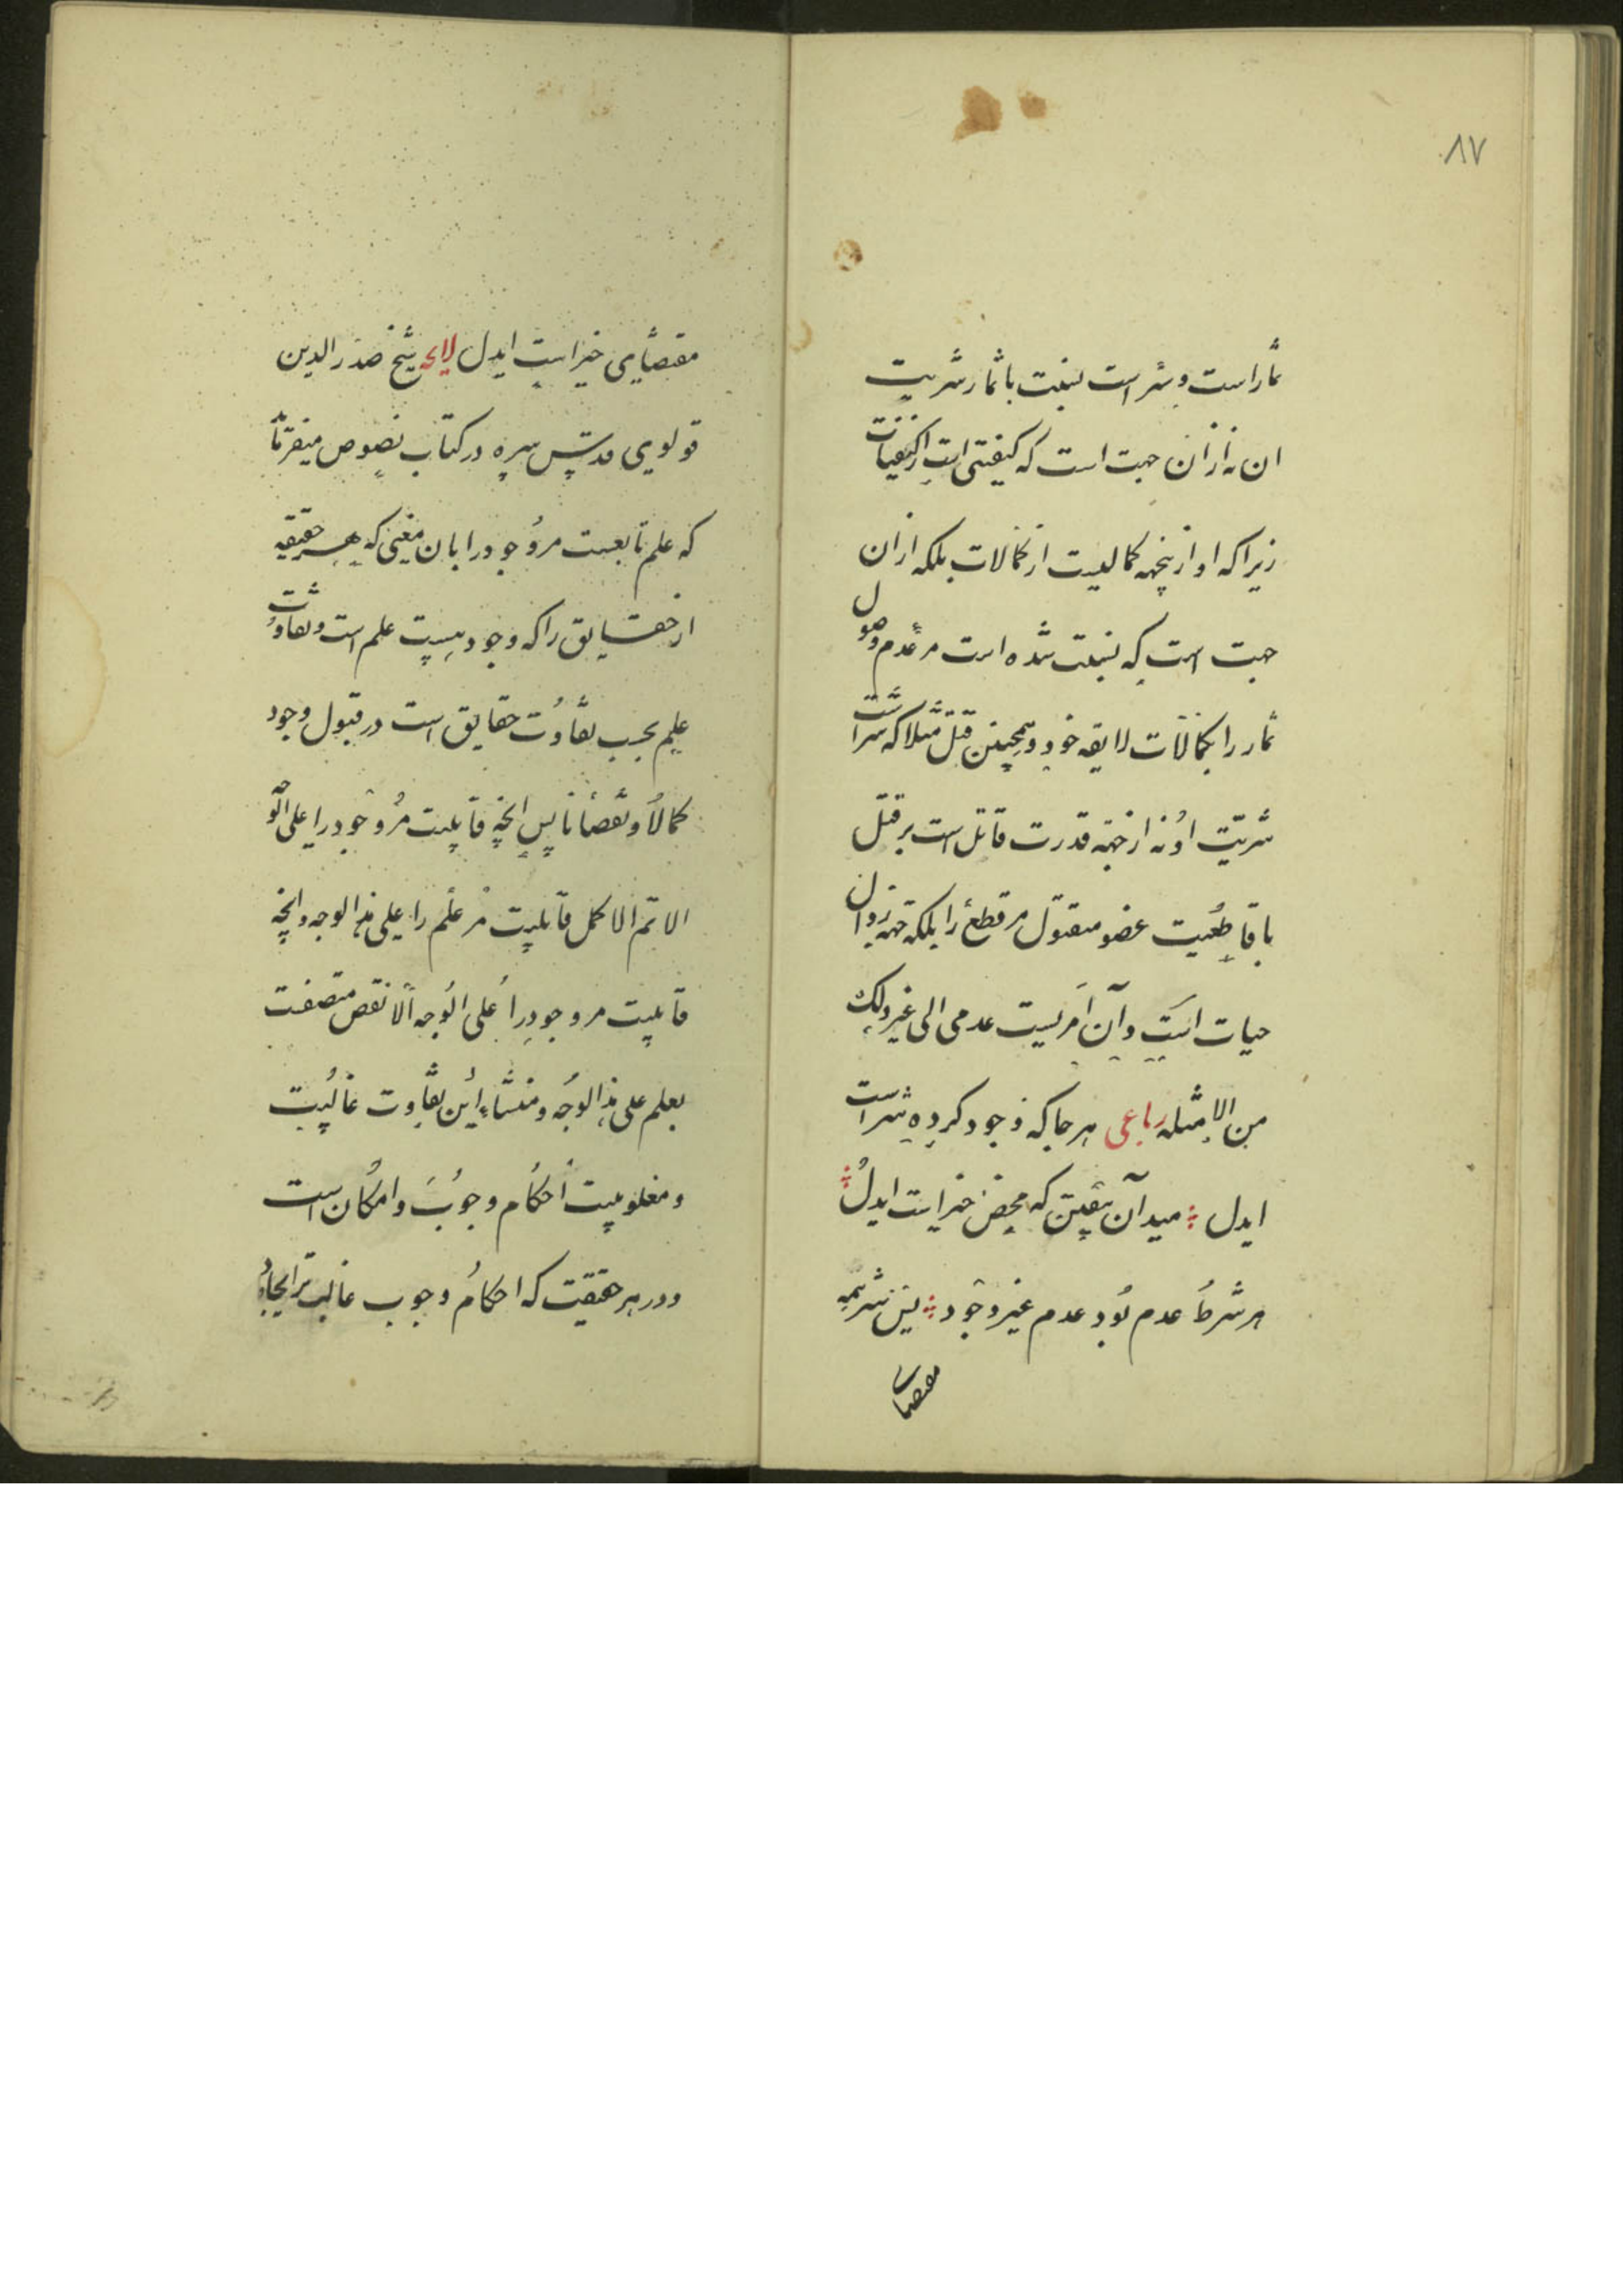 ۸۷
ثمار است و شر است نسبت با ثمار شریت
ان نه ازان جهت است که کیفیتی است از کیفیات
زیرا که او ازینجهه کمالیست از کمالات بلکه ازان
جهت است که نسبت شده است مر عدم وصول
ثمار را بکمالات لایقه خود و همچنین قتل مثلا که شر است
شریت او نه از جهة قدرت قاتل است بر قتل
یا قاطعیت عضو مقتول مر قطع را بلکه جهة زوال
حیات است و آن امریست عدمی الی غیر ذلک
من الامثله رباعی هر جا که وجود کرده سیر است
ایدل میدان بیقین که محض خیر است ایدل
هر شر عدم بود عدم غیر وجود پس شر همه
مقتضای
مقتضای خیر است ایدل لایحه شیخ صدر الدین
قونوی قدس سره در کتاب نصوص میفرماید
که علم تابعست مر وجود را بان معنی که هر حقیقه
از حقایق را که وجود هست علم است و تفاوت
علم بحسب تفاوت حقایق است در قبول وجود
کمالا و نقصانا پس انچه قابلیت مر وجود را علی الوجه
الاتم الاکمل قابلیت مر علم را علی هذا الوجه و انچه
قابلیت مر وجود را علی الوجه الانقص متصفت
بعلم علی هذا الوجه و منشاء این تفاوت غالبیت
و مغلوبیت احکام وجوب و امکان است
و در هر حقیقت که احکام وجوب غالب تر انجا